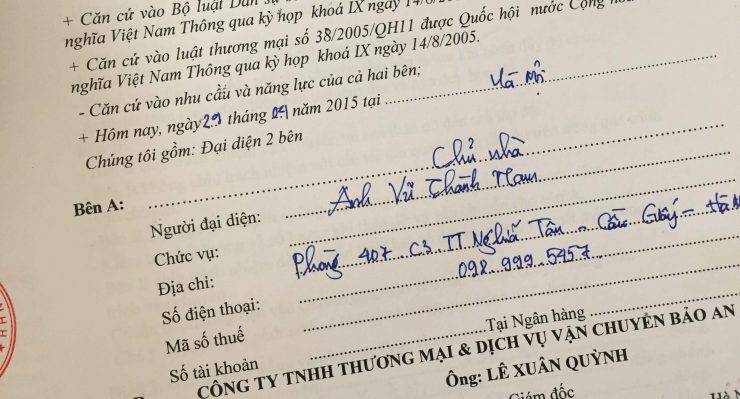 + Căn cứ vào Bộ luật Dân sự
nghĩa Việt Nam Thông qua kỳ họp khoá IX ngày 14/6/
+ Căn cứ vào luật thương mại số 38/2005/QH11 được Quốc hội nước Cộng
nghĩa Việt Nam Thông qua kỳ họp khoá IX ngày 14/8/2005.
- Căn cứ vào nhu cầu và năng lực của cả hai bên;
+ Hôm nay, ngày 29 tháng 04 năm 2015 tại Hà Nội
Chúng tôi gồm: Đại diện 2 bên
Bên A: Chủ nhà
Người đại diện: Anh Vũ Thành Nam
Chức vụ:
Địa chỉ: Phòng 407 C3 TT Nghĩa Tân - Cầu Giấy - Hà
Số điện thoại: 098 999 5457
Mã số thuế
Số tài khoản Tại Ngân hàng
CÔNG TY TNHH THƯƠNG MẠI & DỊCH VỤ VẬN CHUYỂN BẢO AN
Ông: LÊ XUÂN QUỲNH
Giám đốc